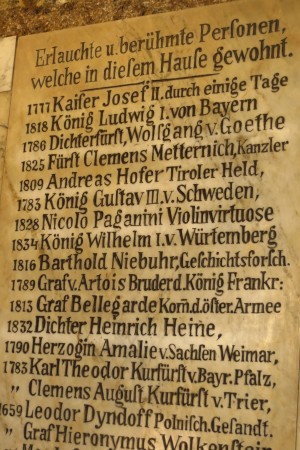 Erlauchte u. berühmte Personen,
welche in diesem Hause gewohnt.
1777 Kaiser Josef II. durch einige Tage
1818 König Ludwig I. von Bayern
1786 Dichterfürst, Wolfgang v. Goethe
1825 Fürst Clemens Metternich, Kanzler
1809 Andreas Hofer Tiroler Held,
1783 König Gustav III. v. Schweden,
1828 Nicolo Paganini Violinvirtuose
1834 König Wilhelm I. v. Würtemberg
1816 Barthold Niebuhr, Geschichtsforsch.
1789 Graf v. Artois Bruder d. König Frankr:
1813 Graf Bellegarde Kom̄. d. öster. Armee
1832 Dichter Heinrich Heine,
1790 Herzogin Amalie v. Sachsen Weimar,
1783 Karl Theodor Kurfürst v. Bayr. Pfalz,
" Clemens August Kurfürst v. Trier,
1659 Leodor Dyndoff Polnisch. Gesandt.
" Graf Hieronymus Wolkenstein